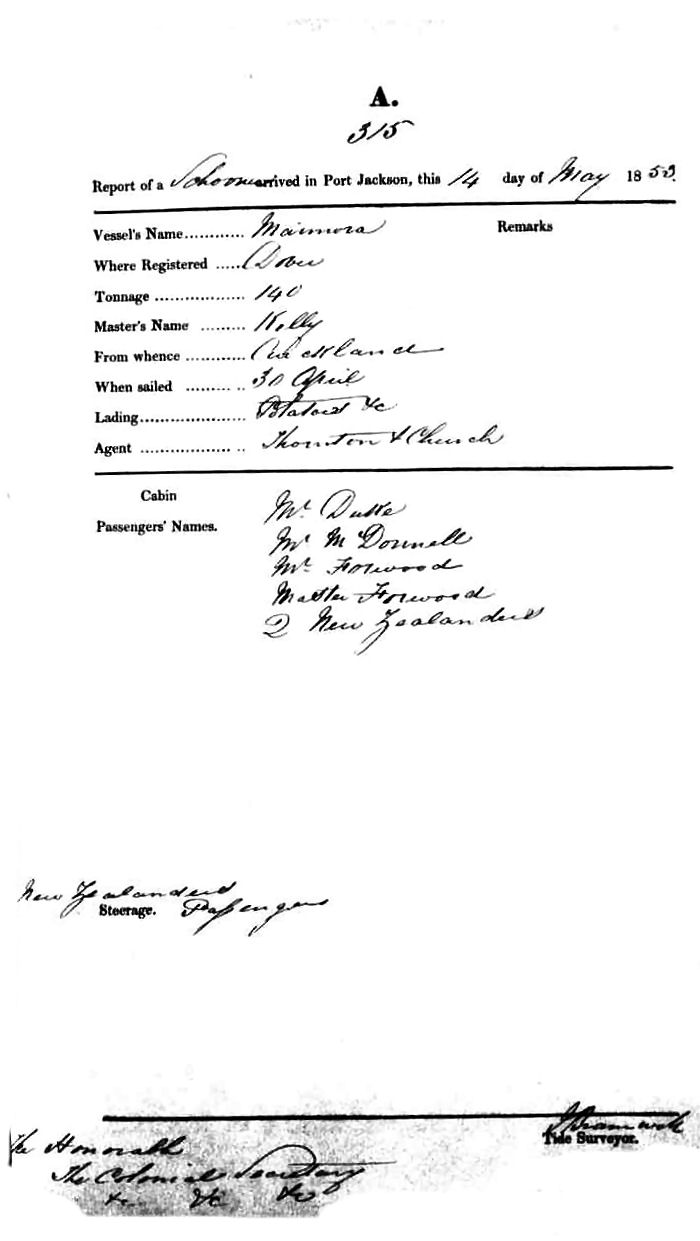 A.
315
Report of a Schooner arrived in Port Jackson, this 14 day of May 1853.
Vessel's Name............ Maimora Remarks
Where Registered ..... Dover
Tonnage .................. 140
Master's Name ......... Kelly
From whence ............ Auckland
When sailed ......... .. 30 April
Lading..................... Potatoes &c
Agent .................. .. Thornton & Church
Cabin
Passengers' Names.
Mr. Duke
Mr McDonnell
Mr. Forwood
Master Forwood
2 New Zealanders
New Zealanders
Steerage. Passengers
Tide Surveyor.
The Honorable
The Colonial Secretary
&c &c &c